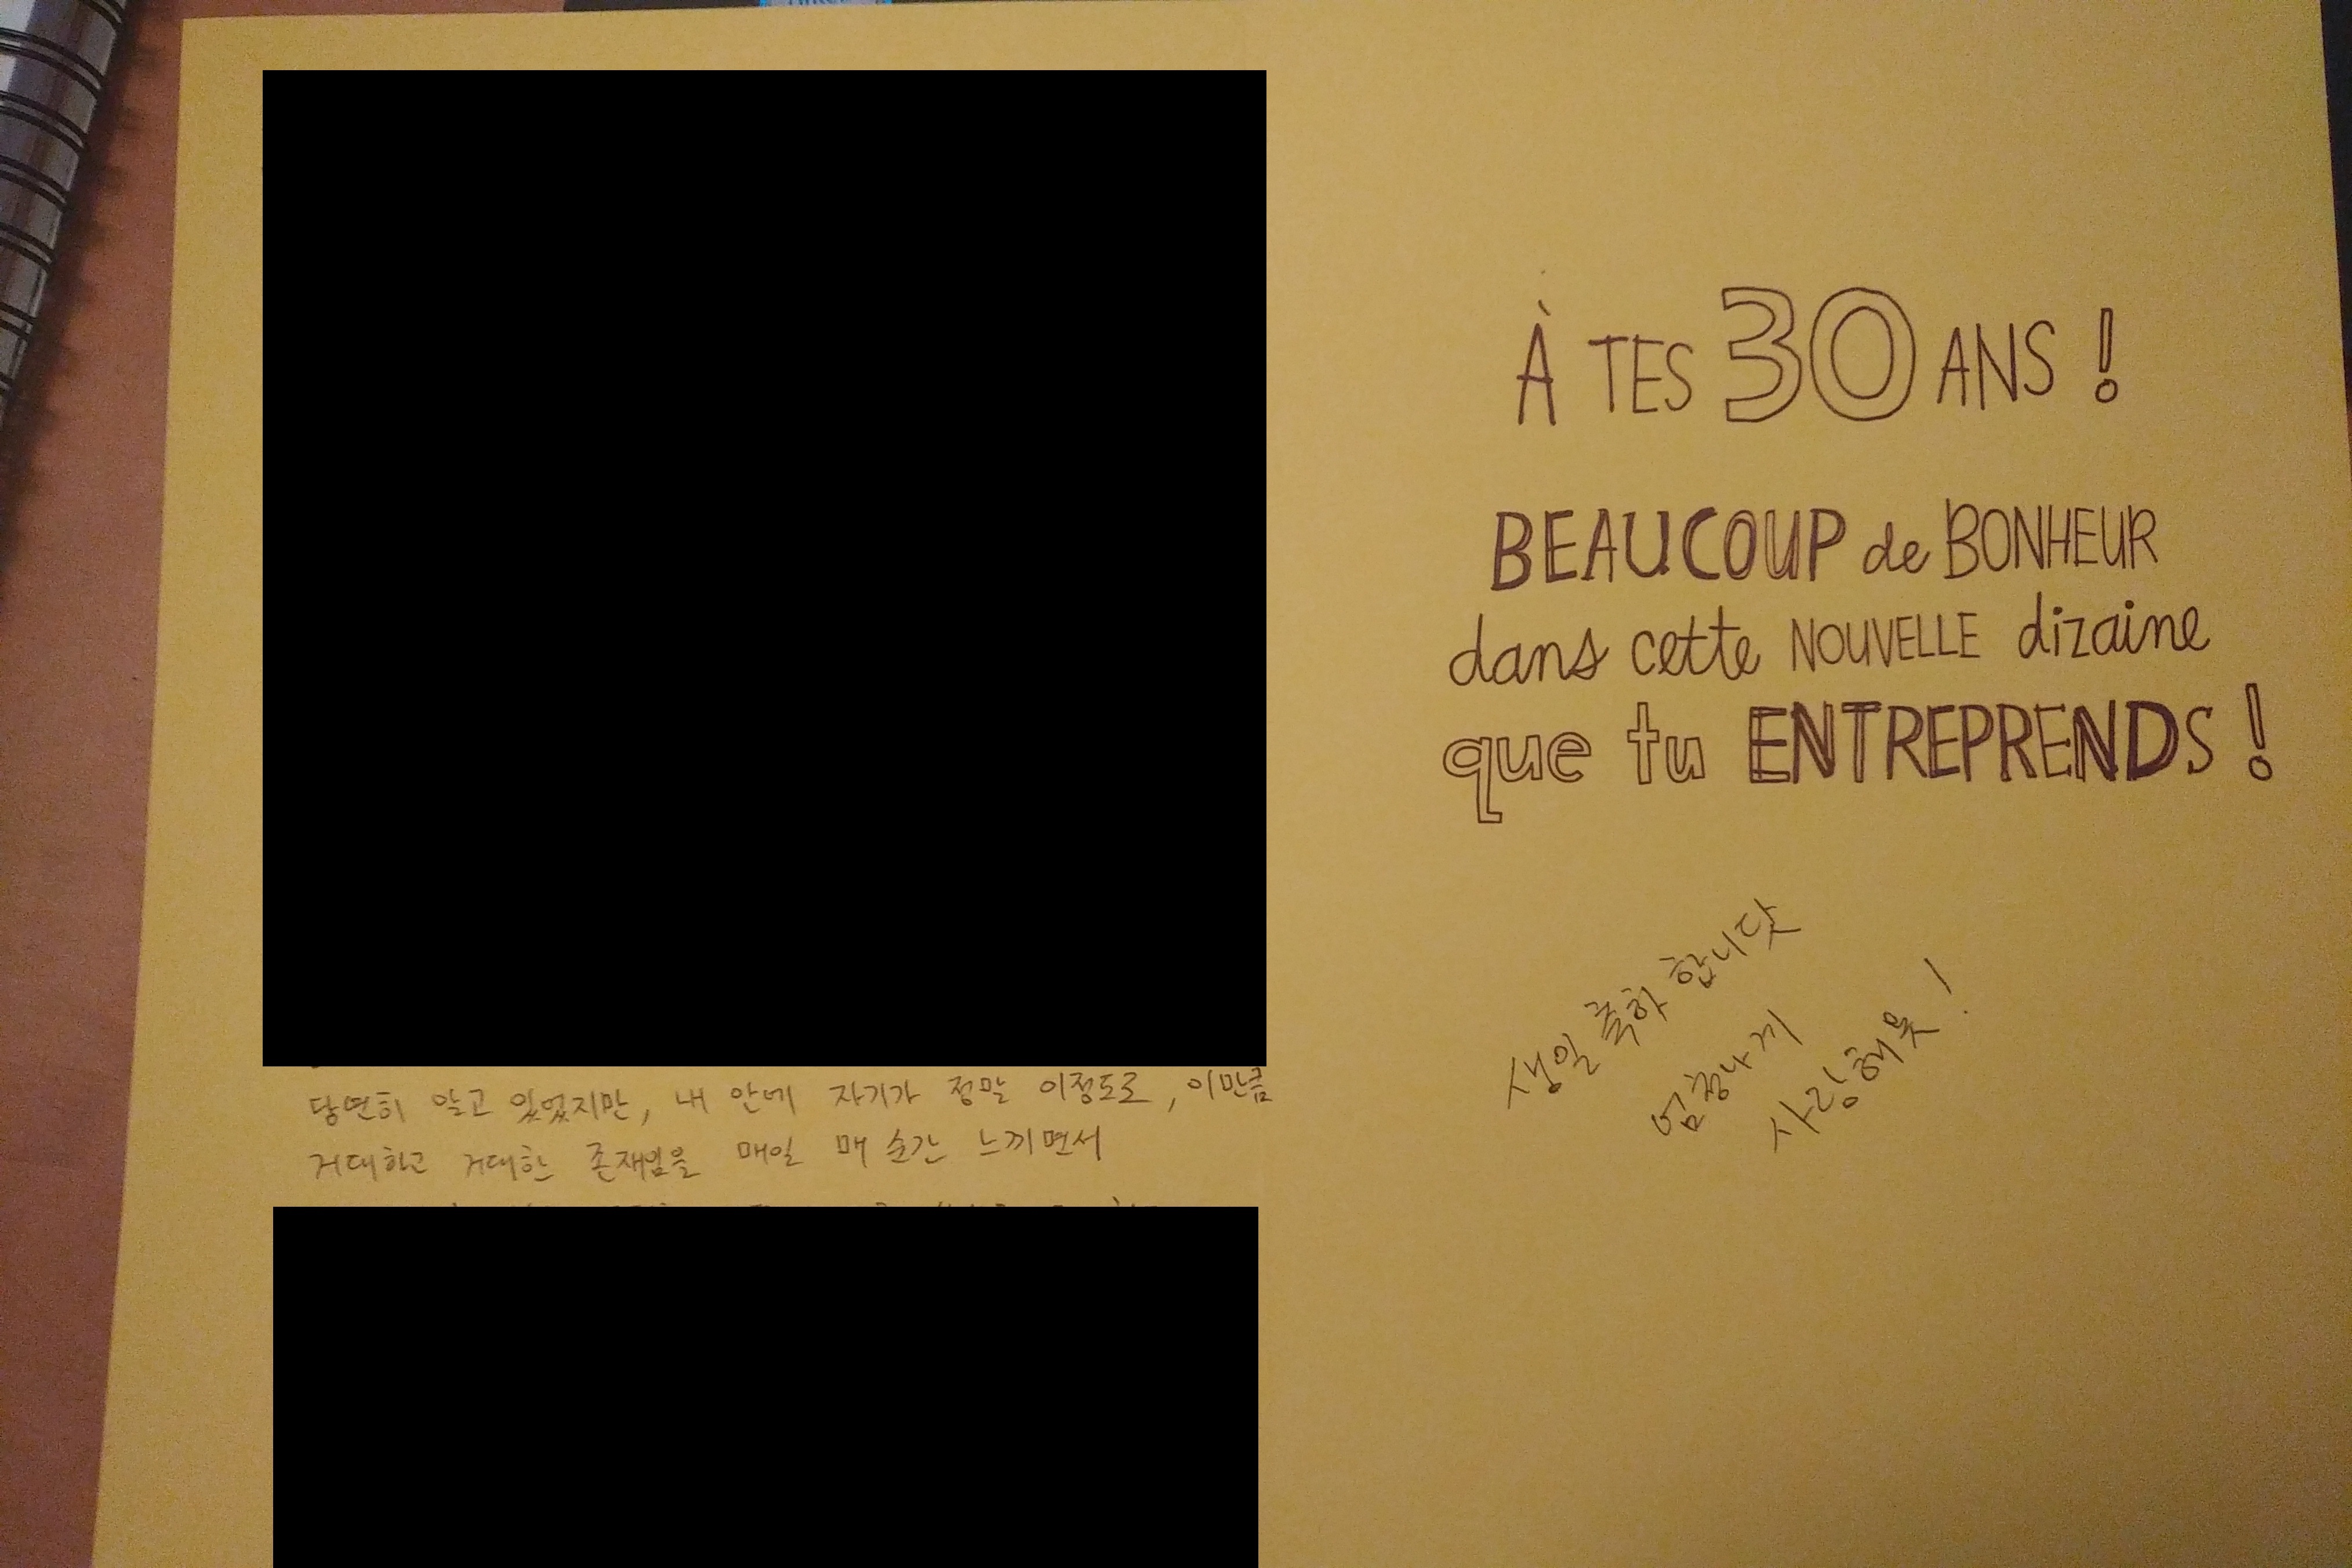 당연히 알고 있었지만, 내 안에 자기가 정말 이정도로, 이만큼
거대하고 거대한 존재임을 매일 매 순간 느끼면서
À TES 30 ANS !
BEAUCOUP de BONHEUR
dans cette NOUVELLE dizaine
que tu ENTREPRENDS !
생일 축하 합니닷
엄청나게
사랑해욧!